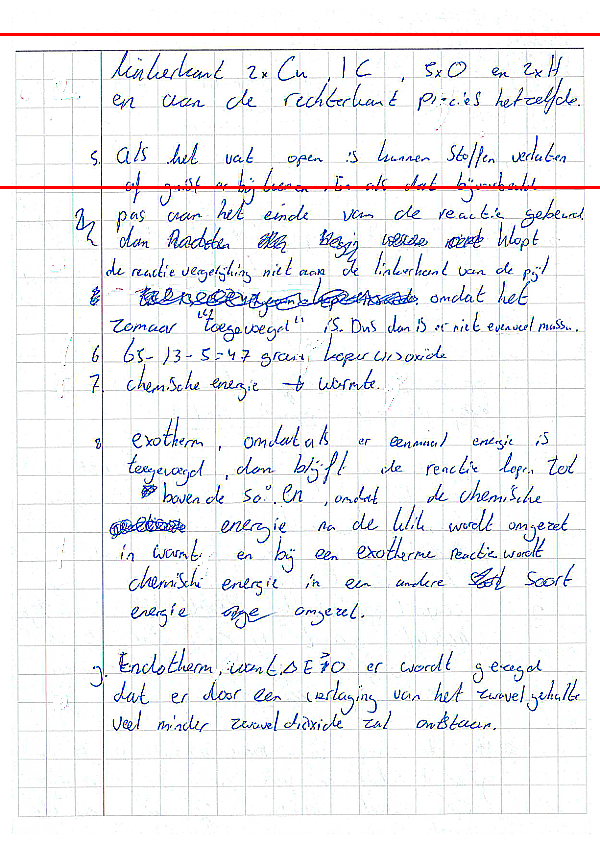 linkerkant 2x Cu, 1 C, 5xO en 2xH
en aan de rechterkant precies hetzelfde.
5. Als het vat open is kunnen stoffen verlaten
of er bij komen. En als dat bijvoorbeeld
pas aan het einde van de reactie gebeurd
dan klopt
de reactievergelijking niet aan de linkerkant van de pijl
omdat het
zomaar "toegevoegd" is. Dus dan is er niet evenveel massa.
6 65-13-5=47 gram koper
7. chemische energie → warmte.
8 exotherm, omdat als er eenmaal energie is
toegevoegd, dan blijft de reactie lopen tot
boven de 50°. En, omdat de chemische
energie na de klik wordt omgezet
in warmte en bij een exotherme reactie wordt
chemische energie in een andere soort
energie omgezet.
9. Endotherm, want ΔE>0 er wordt gezegd
dat er door een verlaging van het zwavelgehalte
veel minder zwaveldioxide zal ontstaan.